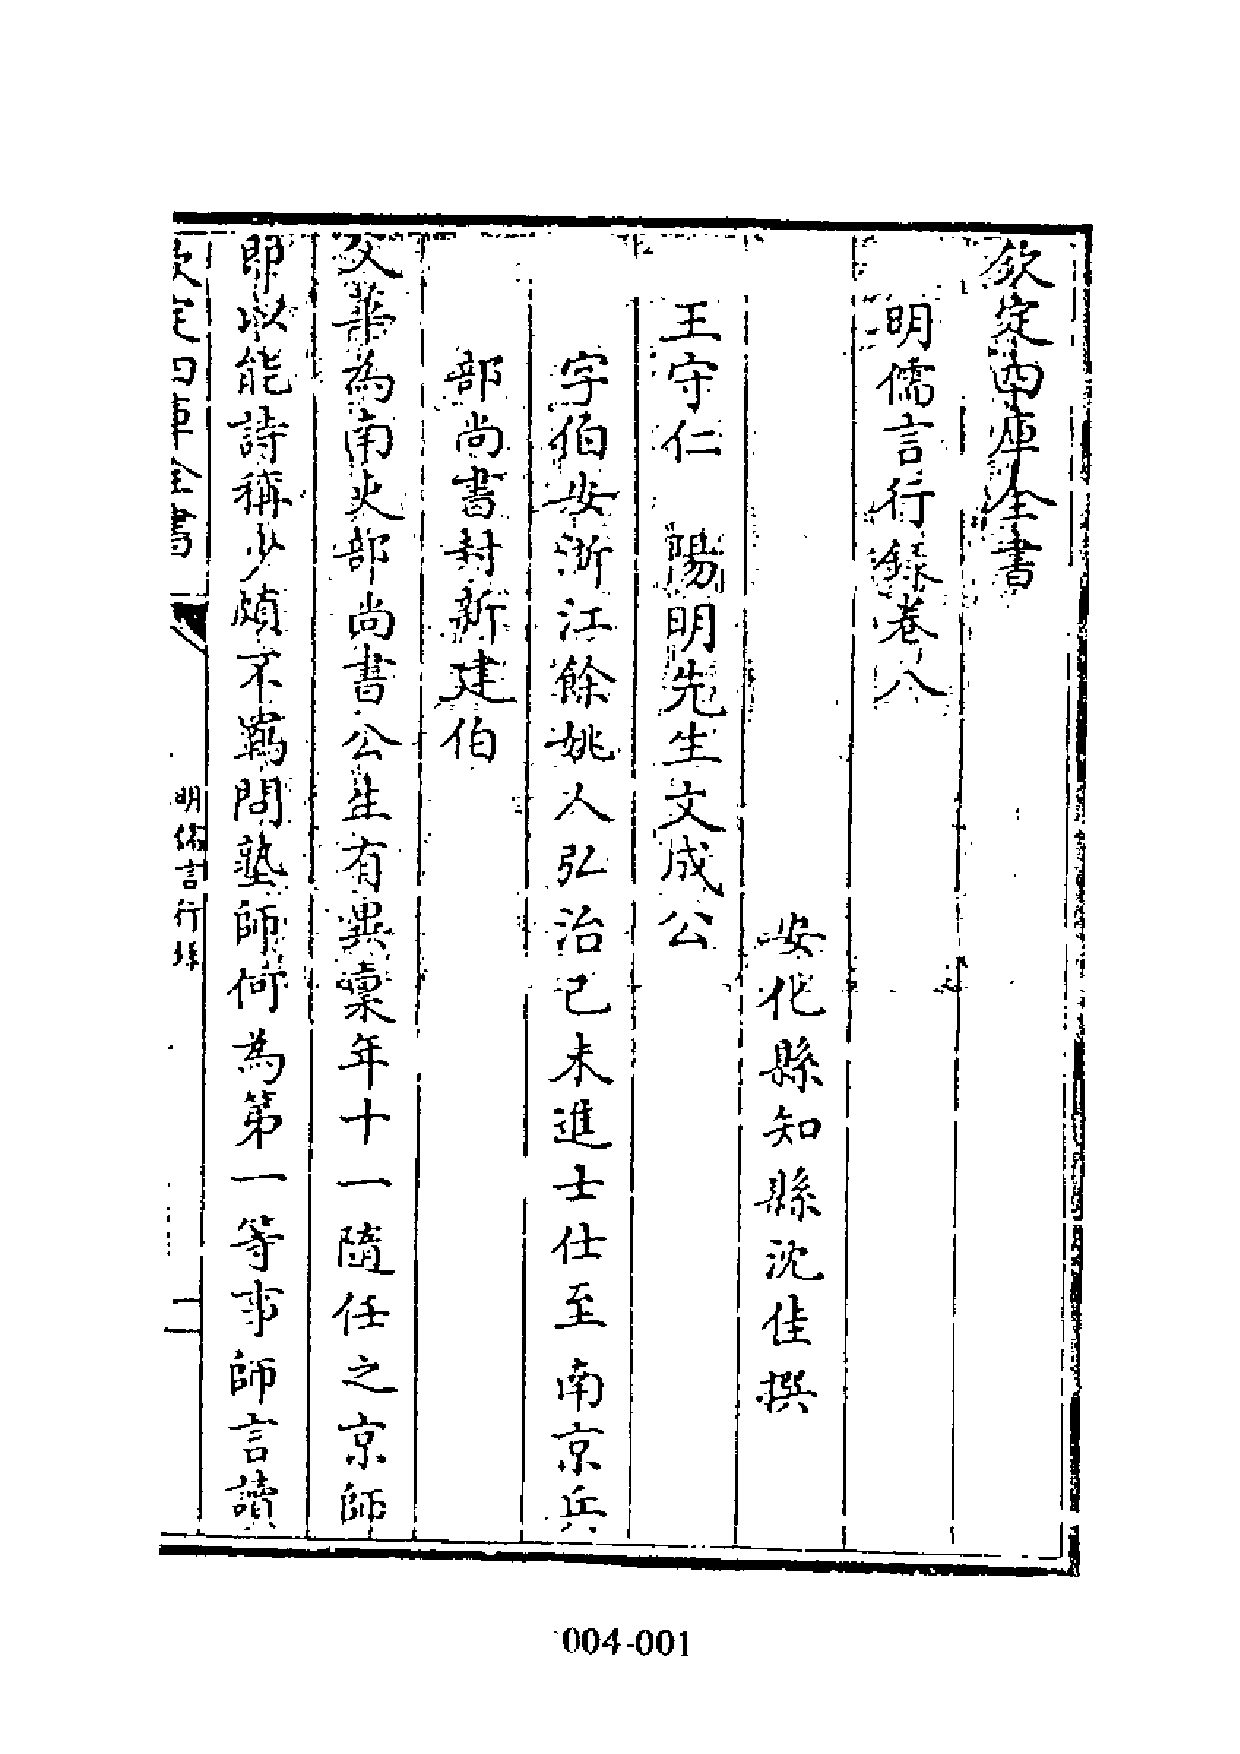 欽定四庫全書
明儒言行録卷八
安化縣知縣沈佳撰
王守仁　陽明先生文成公
字伯安浙江餘姚人弘治己未進士仕至南京兵
部尚書封新建伯
父華為南吏部尚書公生有異稟年十一隨任之京師
即以能詩稱少頗不羈問塾師何為第一等事師言讀
欽定四庫全書
明儒言行録
一
004-001